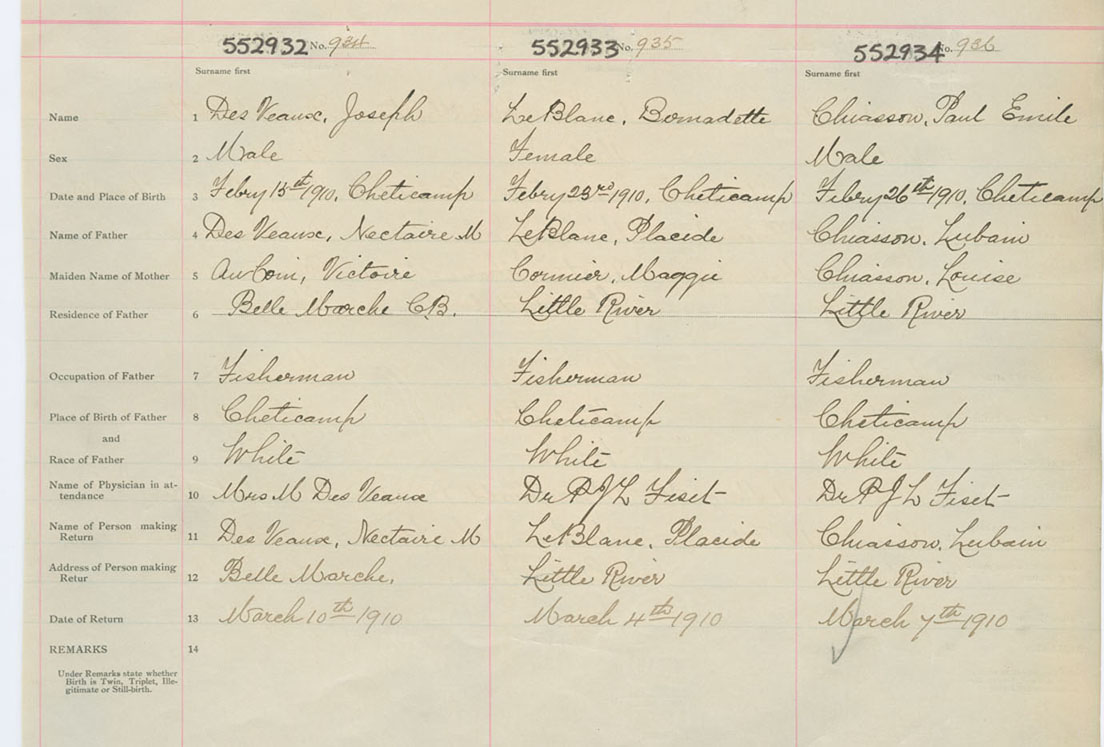 552932 No. 934 552933 No. 935 552934 No. 936
Surname first Surname first Surname first
Name 1 Des Veaux, Joseph LeBlanc, Bernadette Chiasson, Paul Emile
Sex 2 Male Female Male
Date and Place of Birth 3 Febry 15th 1910, Cheticamp Febry 23rd 1910, Cheticamp Febry 26th 1910, Cheticamp
Name of Father 4 Des Veaux, Nectaire M LeBlanc, Placide Chiasson, Lubain
Maiden Name of Mother 5 AuCoin, Victoire Cormier, Maggie Chiasson, Louise
Residence of Father 6 Belle Marche C.B. Little River Little River
Occupation of Father 7 Fisherman Fisherman Fisherman
Place of Birth of Father 8 Cheticamp Cheticamp Cheticamp
and
Race of Father 9 White White White
Name of Physician in at-
tendance 10 Mrs M Des Veaux Dr P J L Fiset Dr P J L Fiset
Name of Person making
Return 11 Des Veaux, Nectaire M LeBlanc, Placide Chiasson, Lubain
Address of Person making
Retur 12 Belle Marche, Little River Little River
Date of Return 13 March 10th 1910 March 4th 1910 March 7th 1910
REMARKS 14
Under Remarks state whether
Birth is Twin, Triplet, Ille-
gitimate or Still-birth.